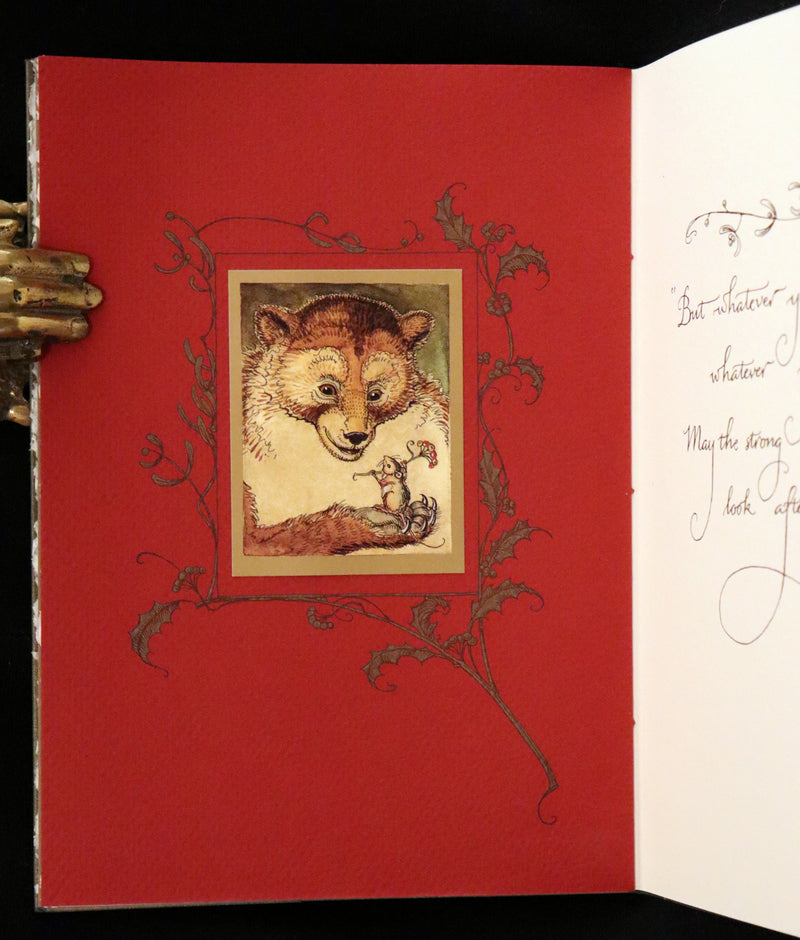 "But whatever
whatever
May the strong
look